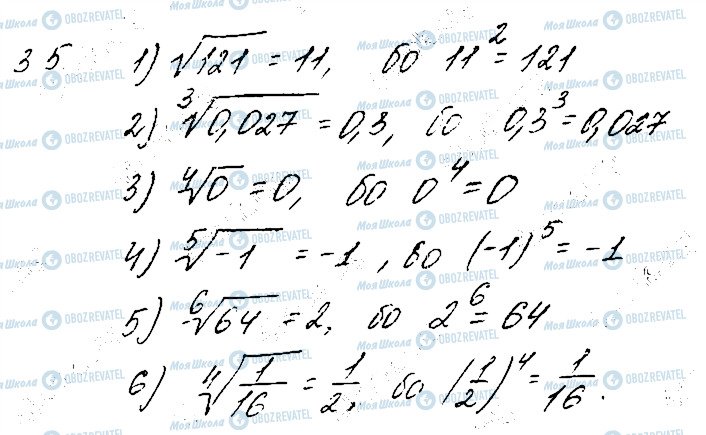 35 1) √121 = 11, бо 11² = 121
2) ³√0,027 = 0,3, бо 0,3³ = 0,027
3) ⁴√0 = 0, бо 0⁴ = 0
4) ⁵√-1 = -1, бо (-1)⁵ = -1
5) ⁶√64 = 2, бо 2⁶ = 64
6) ⁴√1/16 = 1/2, бо (1/2)⁴ = 1/16.